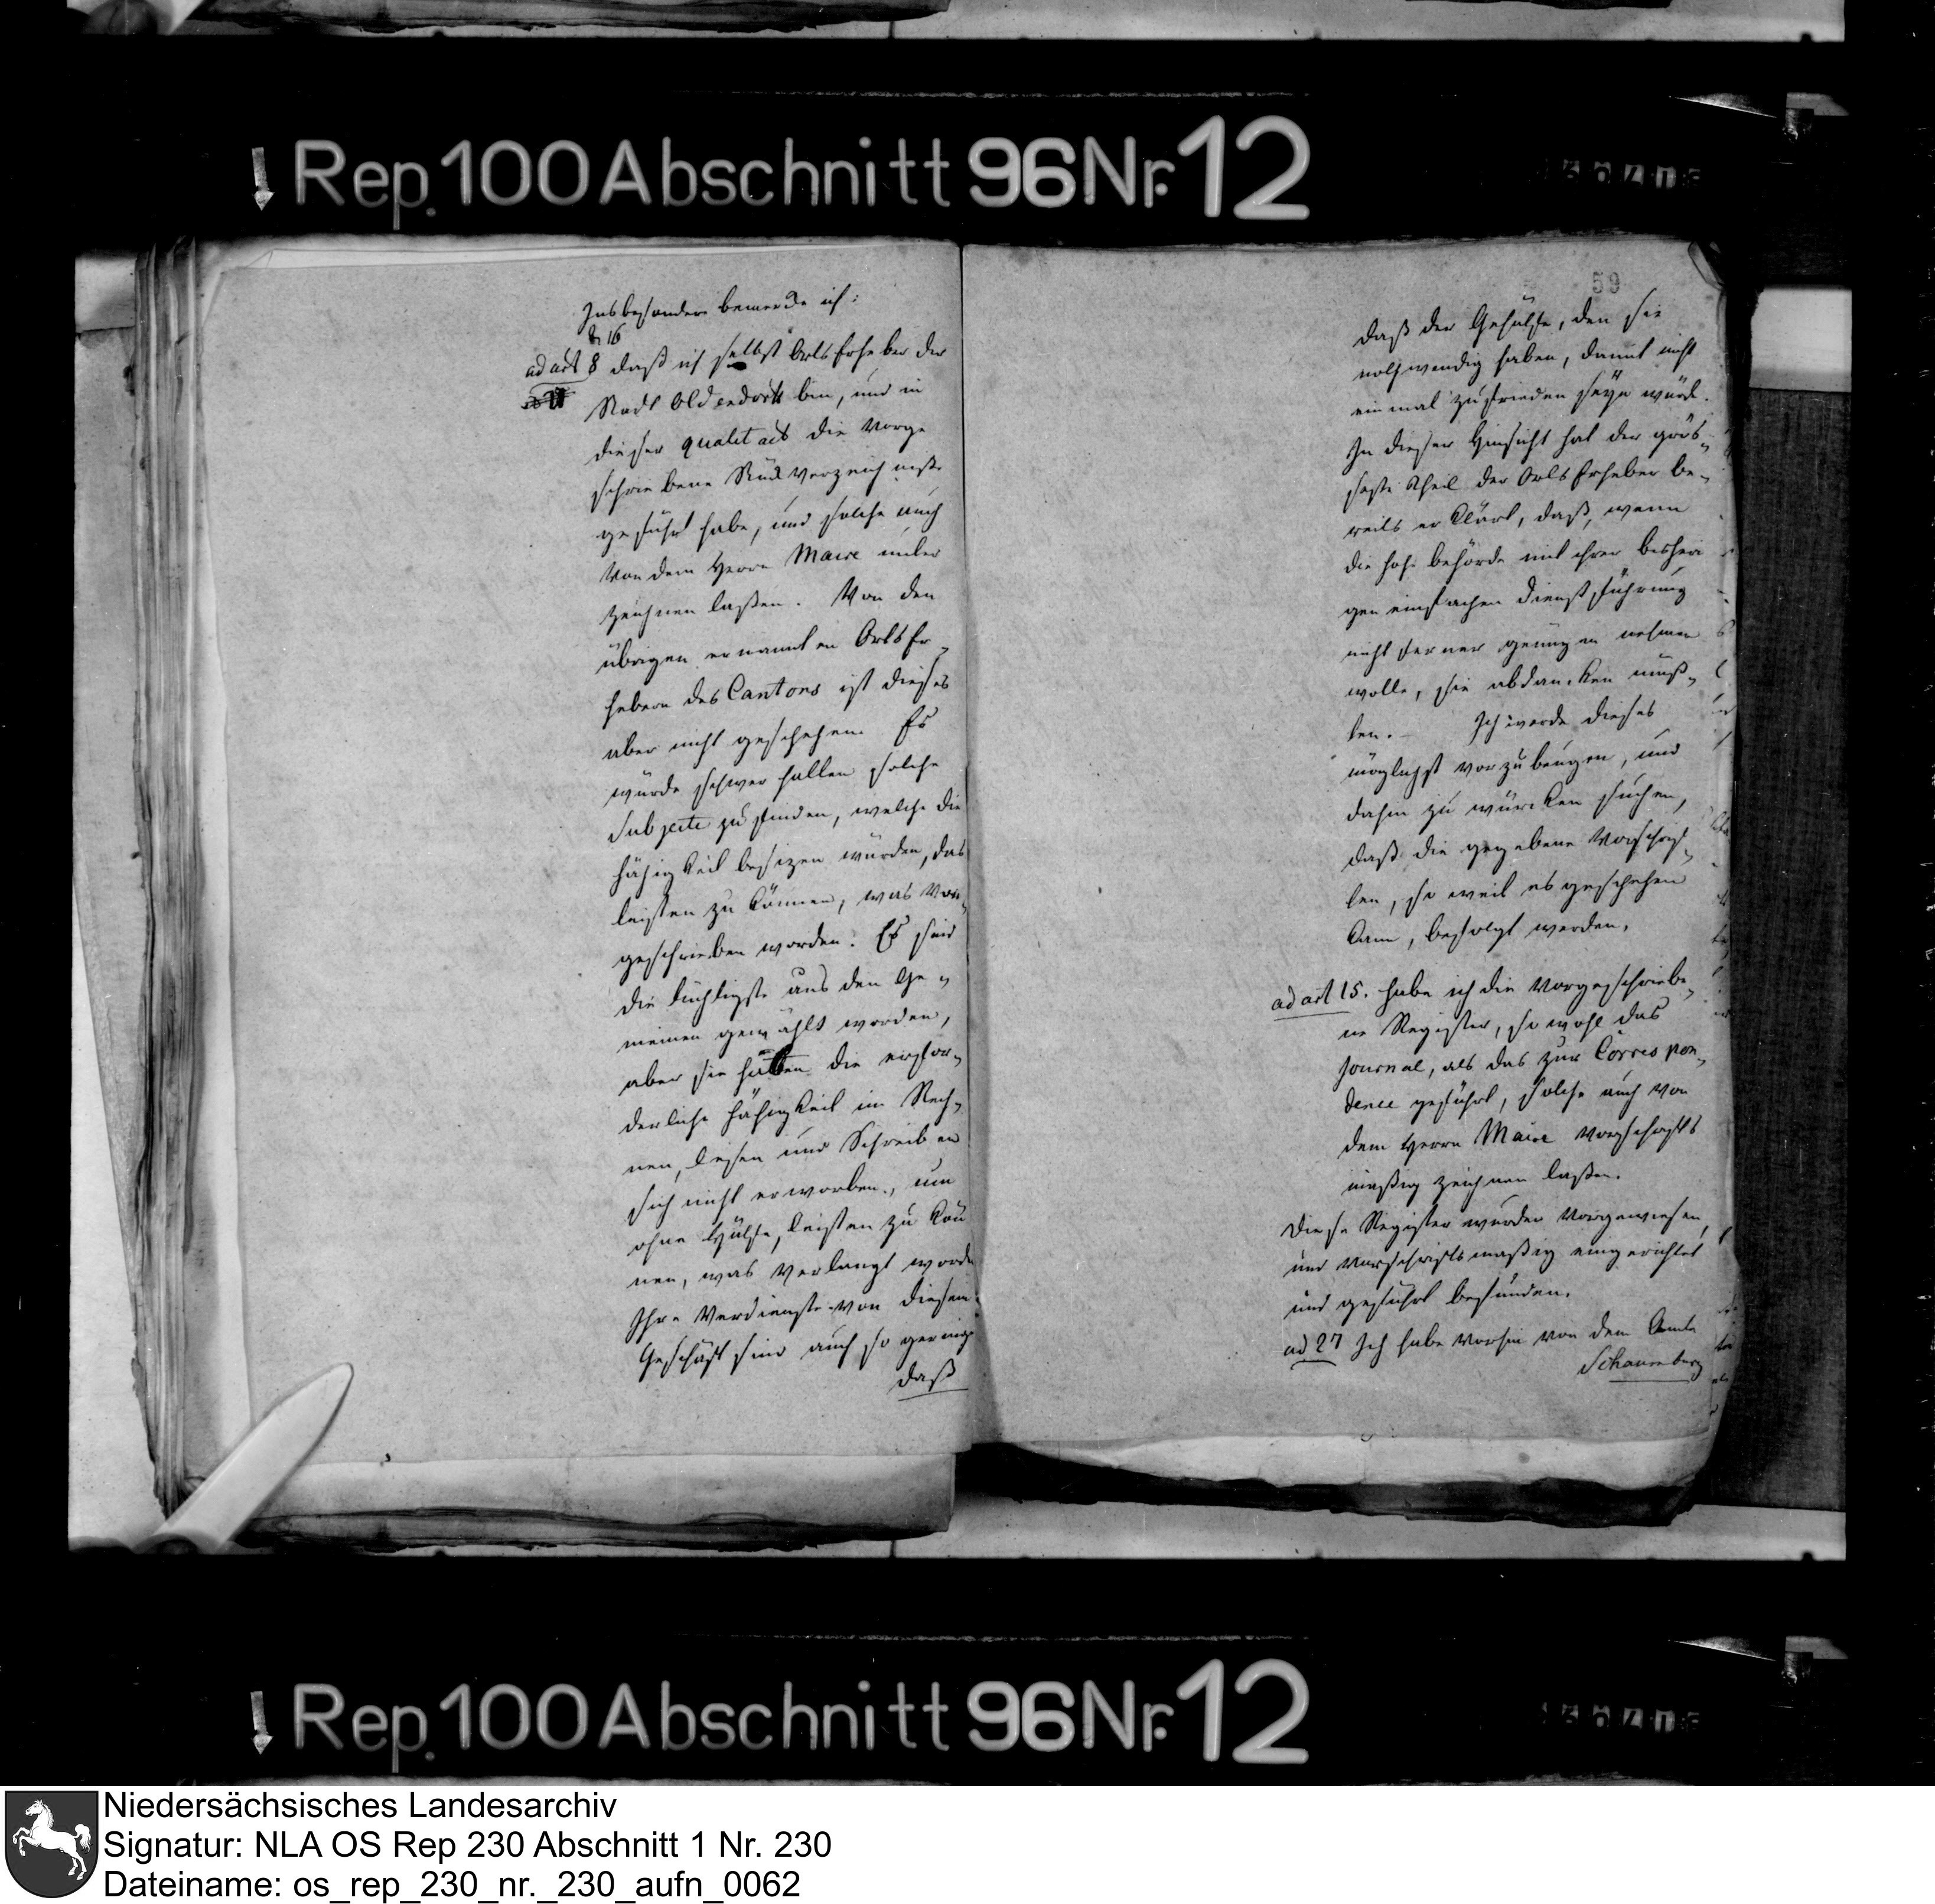 Rep. 100 Abschnitt 96 Nr. 12
Insbesondere bemercke ich:
& 16
ad art 8 daß ich selbst Ortserheber der
Stadt Oldendorff bin, und in
dieser qualitaet die vorge
schriebene Stückverzeichniße
geführt habe, und solche auch
von dem Herrn Maire unter
zeichnen laßen. Von den
übrigen ernannten Ortser„
hebern des Cantons ist dieses
aber nicht geschehen. Es
würde schwer fallen solche
Subjecte zu finden, welche die
Fähigkeit besizen würden, das
leisten zu können, was vor„
geschrieben worden. Es sind
die tüchtigste aus den Ge„
meinen gewählt worden,
aber sie hätten die erfor„
derliche Fähigkeit im Rech„
nen, lesen und Schreiben
sich nicht erworben, um
ohne Hülfe, leisten zu kön
nen, was verlangt worden
Ihre Verdienste von diesem
Geschäft sind auch so geringe
daß
59
daß der Gehülfe, den sie
nothwendig haben, damit nicht
einmal zufrieden seyn würde.
In dieser Hinsicht hat der grös„
seste Theil der Ortserheber be„
reits erklärt, daß, wenn
die hohe behörde mit ihrer bisheri
gen einfachen Dienstführung
nicht ferner genügen nehmen
wolle, sie abdancken müß„
ten. – Ich werde dieses
möglichst vorzubeugen, und
dahin zu würcken suchen,
daß die gegebene Vorschrif„
ten, so weit es geschehen
kann, befolgt werden.
ad art 15. habe ich die vorgeschriebe„
ne Register, so wohl das
Journal, als das zur Correspon„
dence geführt, solche auch von
dem Herrn Maire vorschrifts
mäßig zeichnen laßen.
Diese Register wurden vorgewiesen,
und vorschriftsmäßig eingerichtet
und geführt befunden.
ad 27 Ich habe vorhin von dem Amte
Schauenburg
Rep. 100 Abschnitt 96 Nr. 12
Niedersächsisches Landesarchiv
Signatur: NLA OS Rep 230 Abschnitt 1 Nr. 230
Dateiname: os_rep_230_nr._230_aufn_0062